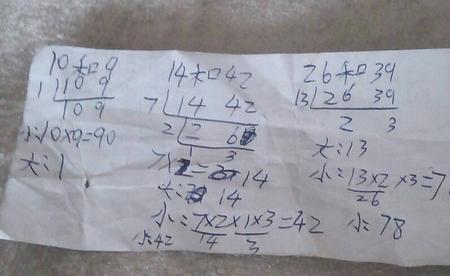 10和9
1 10 9
10 9
小:10×9=90
大:1
14和42
7 14 42
2 2 6
1 3
7×2=14
大:14
小:7×2×1×3=42
14 3
小42
26和39
13 26 39
2 3
大:13
小:13×2×3=7
26
小:78